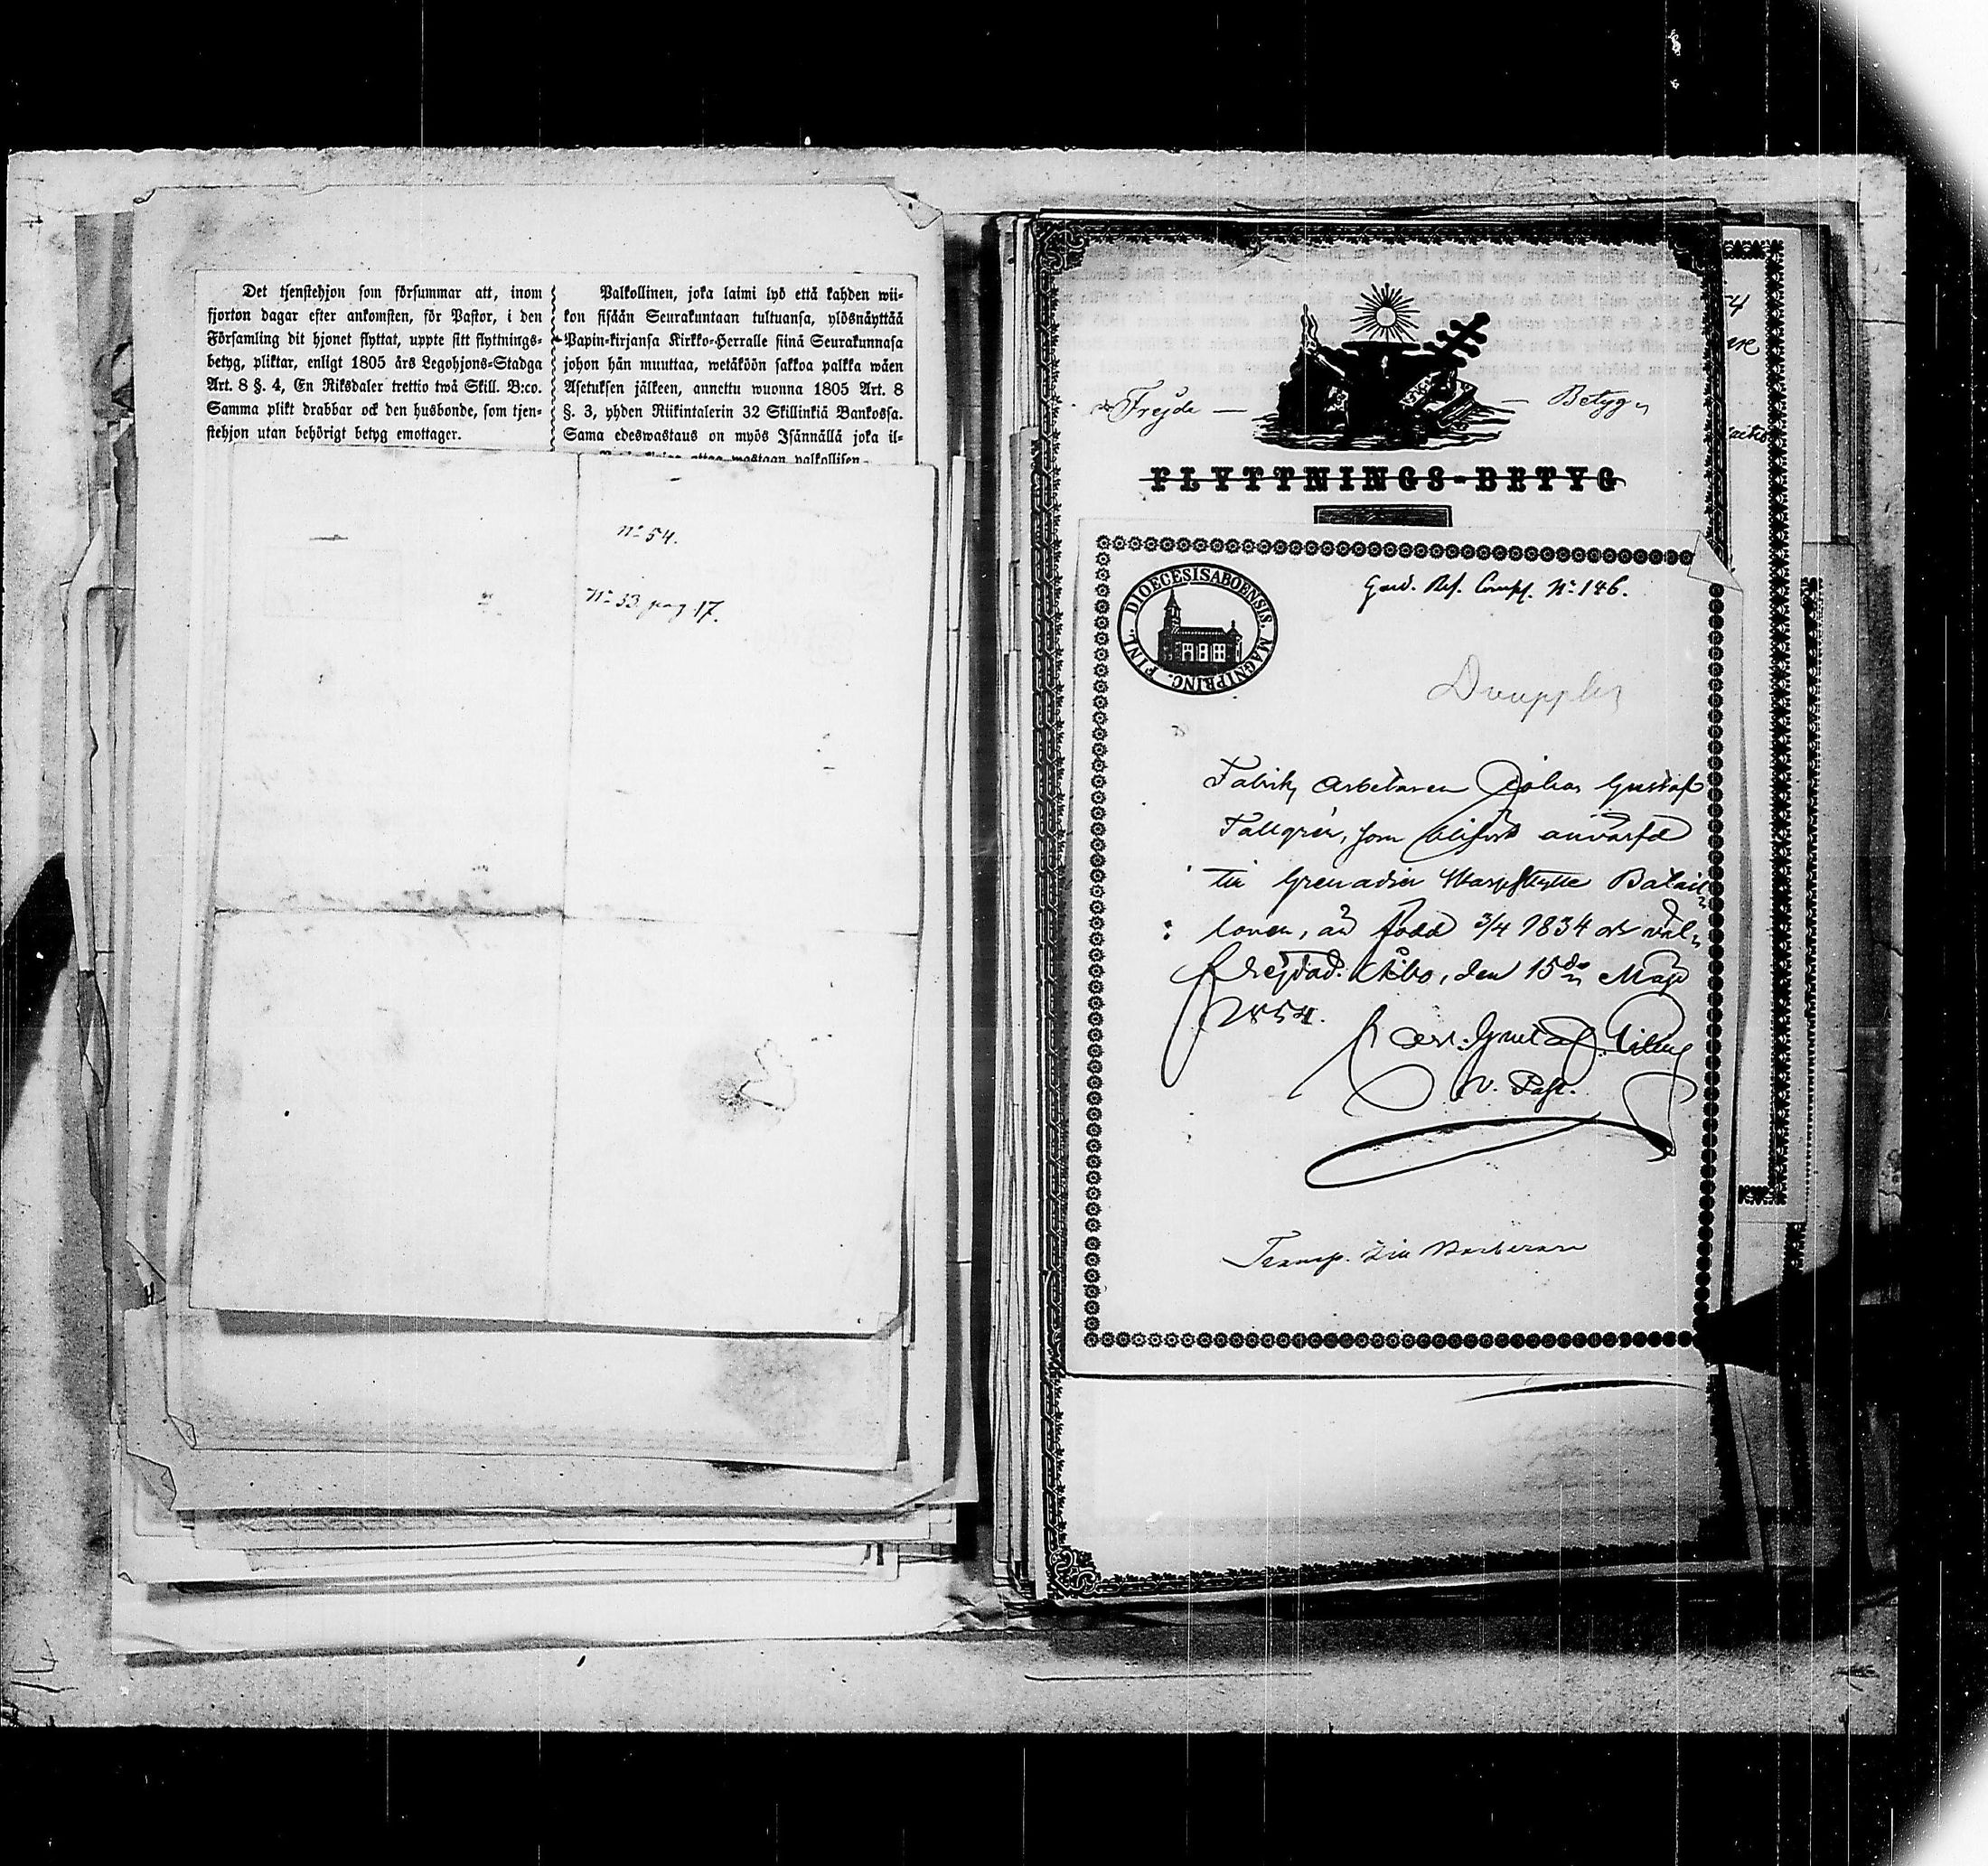 Det tjenstehjon som försummar att, inom
fjorton dagar efter ankomsten, för Pastor, i den
Församling dit hjonet flyttat, uppte sitt flyttnings-
betyg, pliktar, enligt 1805 års Legohjons-Stadga
Art. 8 §. 4, En Riksdaler trettio twå Skill. B:co.
Samma plikt drabbar ock den husbonde, som tjen-
stehjon utan behörigt betyg emottager.
Palkollinen, joka laimi lyö että kahden wii-
kon sisään Seurakuntaan tultuansa, ylösnäyttää
Papin-kirjansa Kirkko-Herralle siinä Seurakunnasa
johon hän muuttaa, wetäköön sakkoa palkka wäen
Asetuksen jälkeen, annettu wuonna 1805 Art. 8
§. 3, yhden Riikintalerin 32 Skillinkiä Bankossa.
Sama edeswastaus on myös Isännällä joka il-
ottaa wastaan palkollisen
No 54.
No 33. pag 17.
Frejde — — Betyg
FLYTTNINGS-BETYG
DIOECESIS ABOENSIS. MAGNI PRINC. FINL.
Gard. Res. Comp. No 146.
Fabriks arbetaren Johan Gustaf
Tallgrén, som blifvit anvärfd
till Grenadier Skarpskytte Batail
lonen, är född 3/4 1834 och väl
frejdad. Åbo, den 15de Maji
1854.
v. Past.
Transp. till